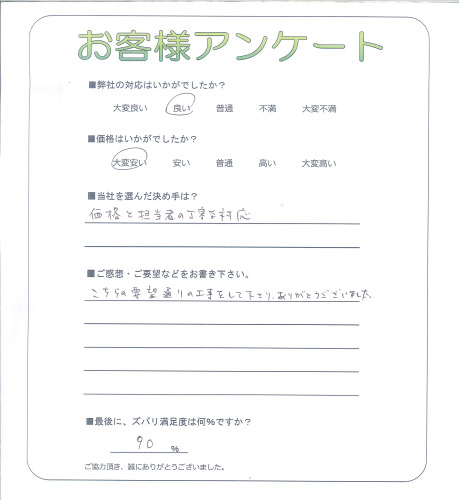 お客様アンケート
■弊社の対応はいかがでしたか？
大変良い 良い 普通 不満 大変不満
■価格はいかがでしたか？
大変安い 安い 普通 高い 大変高い
■当社を選んだ決め手は？
価格と担当者の丁寧な対応
■ご感想・ご要望などをお書き下さい。
こちらの要望通りの工事をして下さり、ありがとうございました。
■最後に、ズバリ満足度は何％ですか？
90 ％
ご協力頂き、誠にありがとうございました。